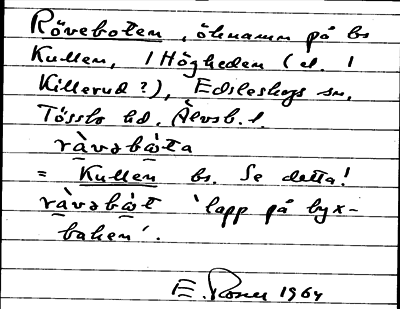 Röveboten, öknamn på bs
Kullen, i Högheden (el. i
Killerud?), Edsleskogs sn,
Tössbo hd, Älvsb. l.
rὰvəbὼta
= Kullen bs. Se detta!
rὰvəbὼt 'lapp på byx-
baken'.
E. 1964